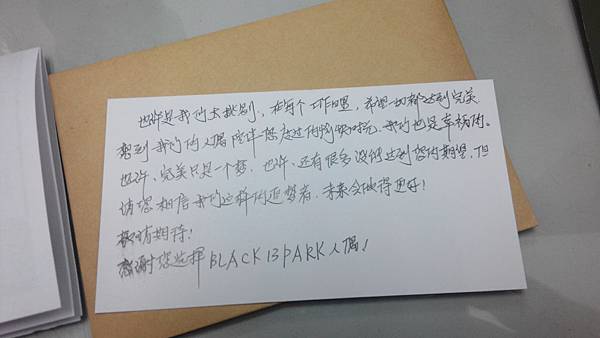 也许是我们太挑剔，在每个工作日里，希望一切都达到完美
想到我们的人偶陪伴您度过的愉快时光，我们也是幸福的。
也许，完美只是一个梦，也许，还有很多没能达到您的期望，但
请您相信我们这样的追梦者，未来会做得更好！
敬请期待！
感谢您选择BLACK13PARK人偶！